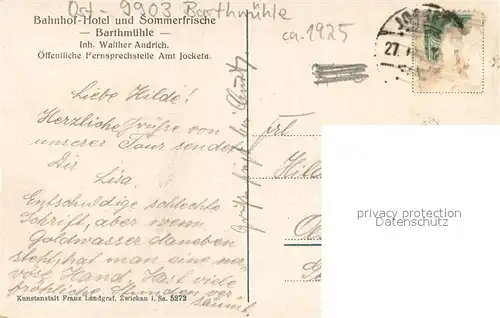 Ost - 9903 Barthmühle
Bahnhof-Hotel und Sommerfrische
— Barthmühle —
Inh. Walther Andrich.
Öffentliche Fernsprechstelle Amt Jocketa.
ca. 1925
27.
Liebe Hilde!
Herzliche Grüße von
unserer Tour sendet
Dir
Lisa.
Entschuldige schlechte
Schrift, aber wenn
Goldwasser daneben
steht, hat man eine ner-
vöse Hand. Hast viele
fröhliche Stunden ver-
säumt.
Kunstanstalt Franz Landgraf, Zwickau i. Sa. 5272
Frl.
privacy protection
Datenschutz